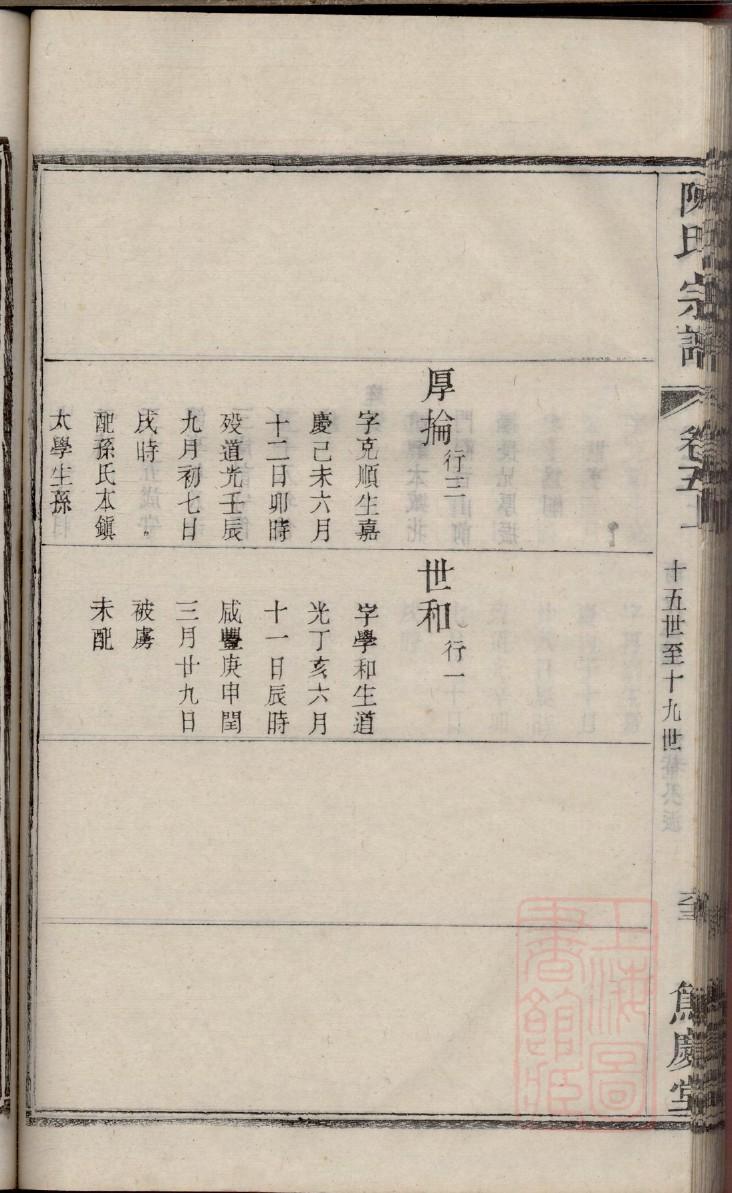 陳氏宗譜
卷五
十五世至十九世
堂
厚掄 行三
字克順生嘉
慶己未六月
十二日卯時
歿道光壬辰
九月初七日
戌時
配孫氏本鎮
太學生孫
世和 行一
字學和生道
光丁亥六月
十一日辰時
咸豐庚申閏
三月廿九日
被虜
未配
上海圖書館藏